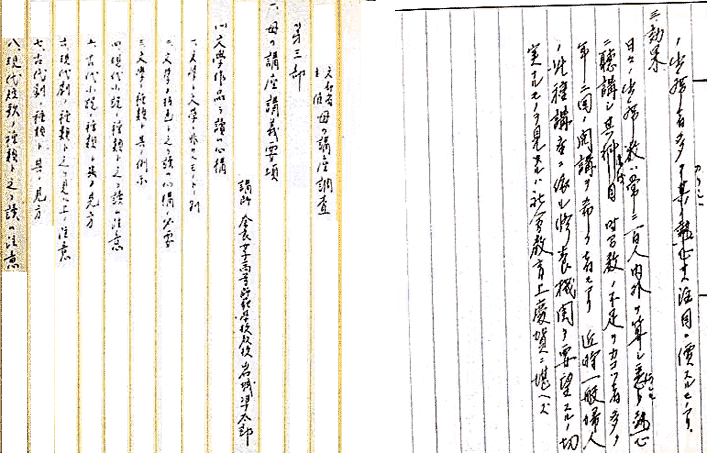 ノ出席者多ク其ノ熱心サ注目ニ價スルモノアリ
三、効果
日々ノ出席数ハ常ニ二百人内外ヲ算シ悉ク熱心
ニ聴講シ其科目時間数ノ不足ヲカコツ者多ク
年二回ノ開講ヲ希フ者モアリ近時一般婦人
ノ此種講座ニ依ル修養機関ヲ要望スルノ切
実ナルモノヲ見タルハ社会教育上慶賀ニ堪ヘズ
文部省主催 母の講座調査
一、母の講座講義要項
第三部
講師 奈良女子高等師範学校教授 岩城準太郎
(一)文學作品を讀む心構
一、文学と文学で
二、文学の特色と之を讀む心構の必要
三、文学の種類と其の例示
四、現代小説の種類と之を讀む注意
五、古代小説の種類と其の見方
六、現代劇の種類と之を見る上の注意
七、古代劇の種類と其の見方
八、現代短歌の種類と之を讀む注意